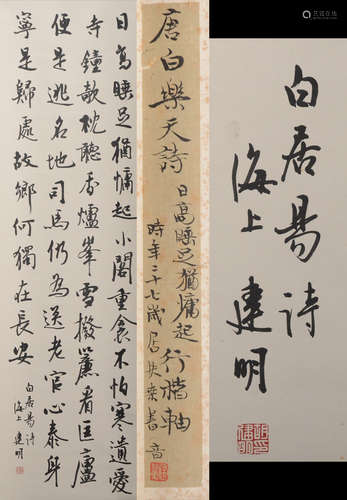 白居易詩
海上建明
唐白樂天詩
日高睡足猶慵起行楷軸
時年二十七歲居
日高睡足猶慵起小閣重衾不怕寒遺愛
寺鐘欹枕聽香爐峯雪撥簾看匡廬
便是逃名地司馬仍為送老官心泰身
寧是歸處故鄉何獨在長安
白居易詩
海上建明